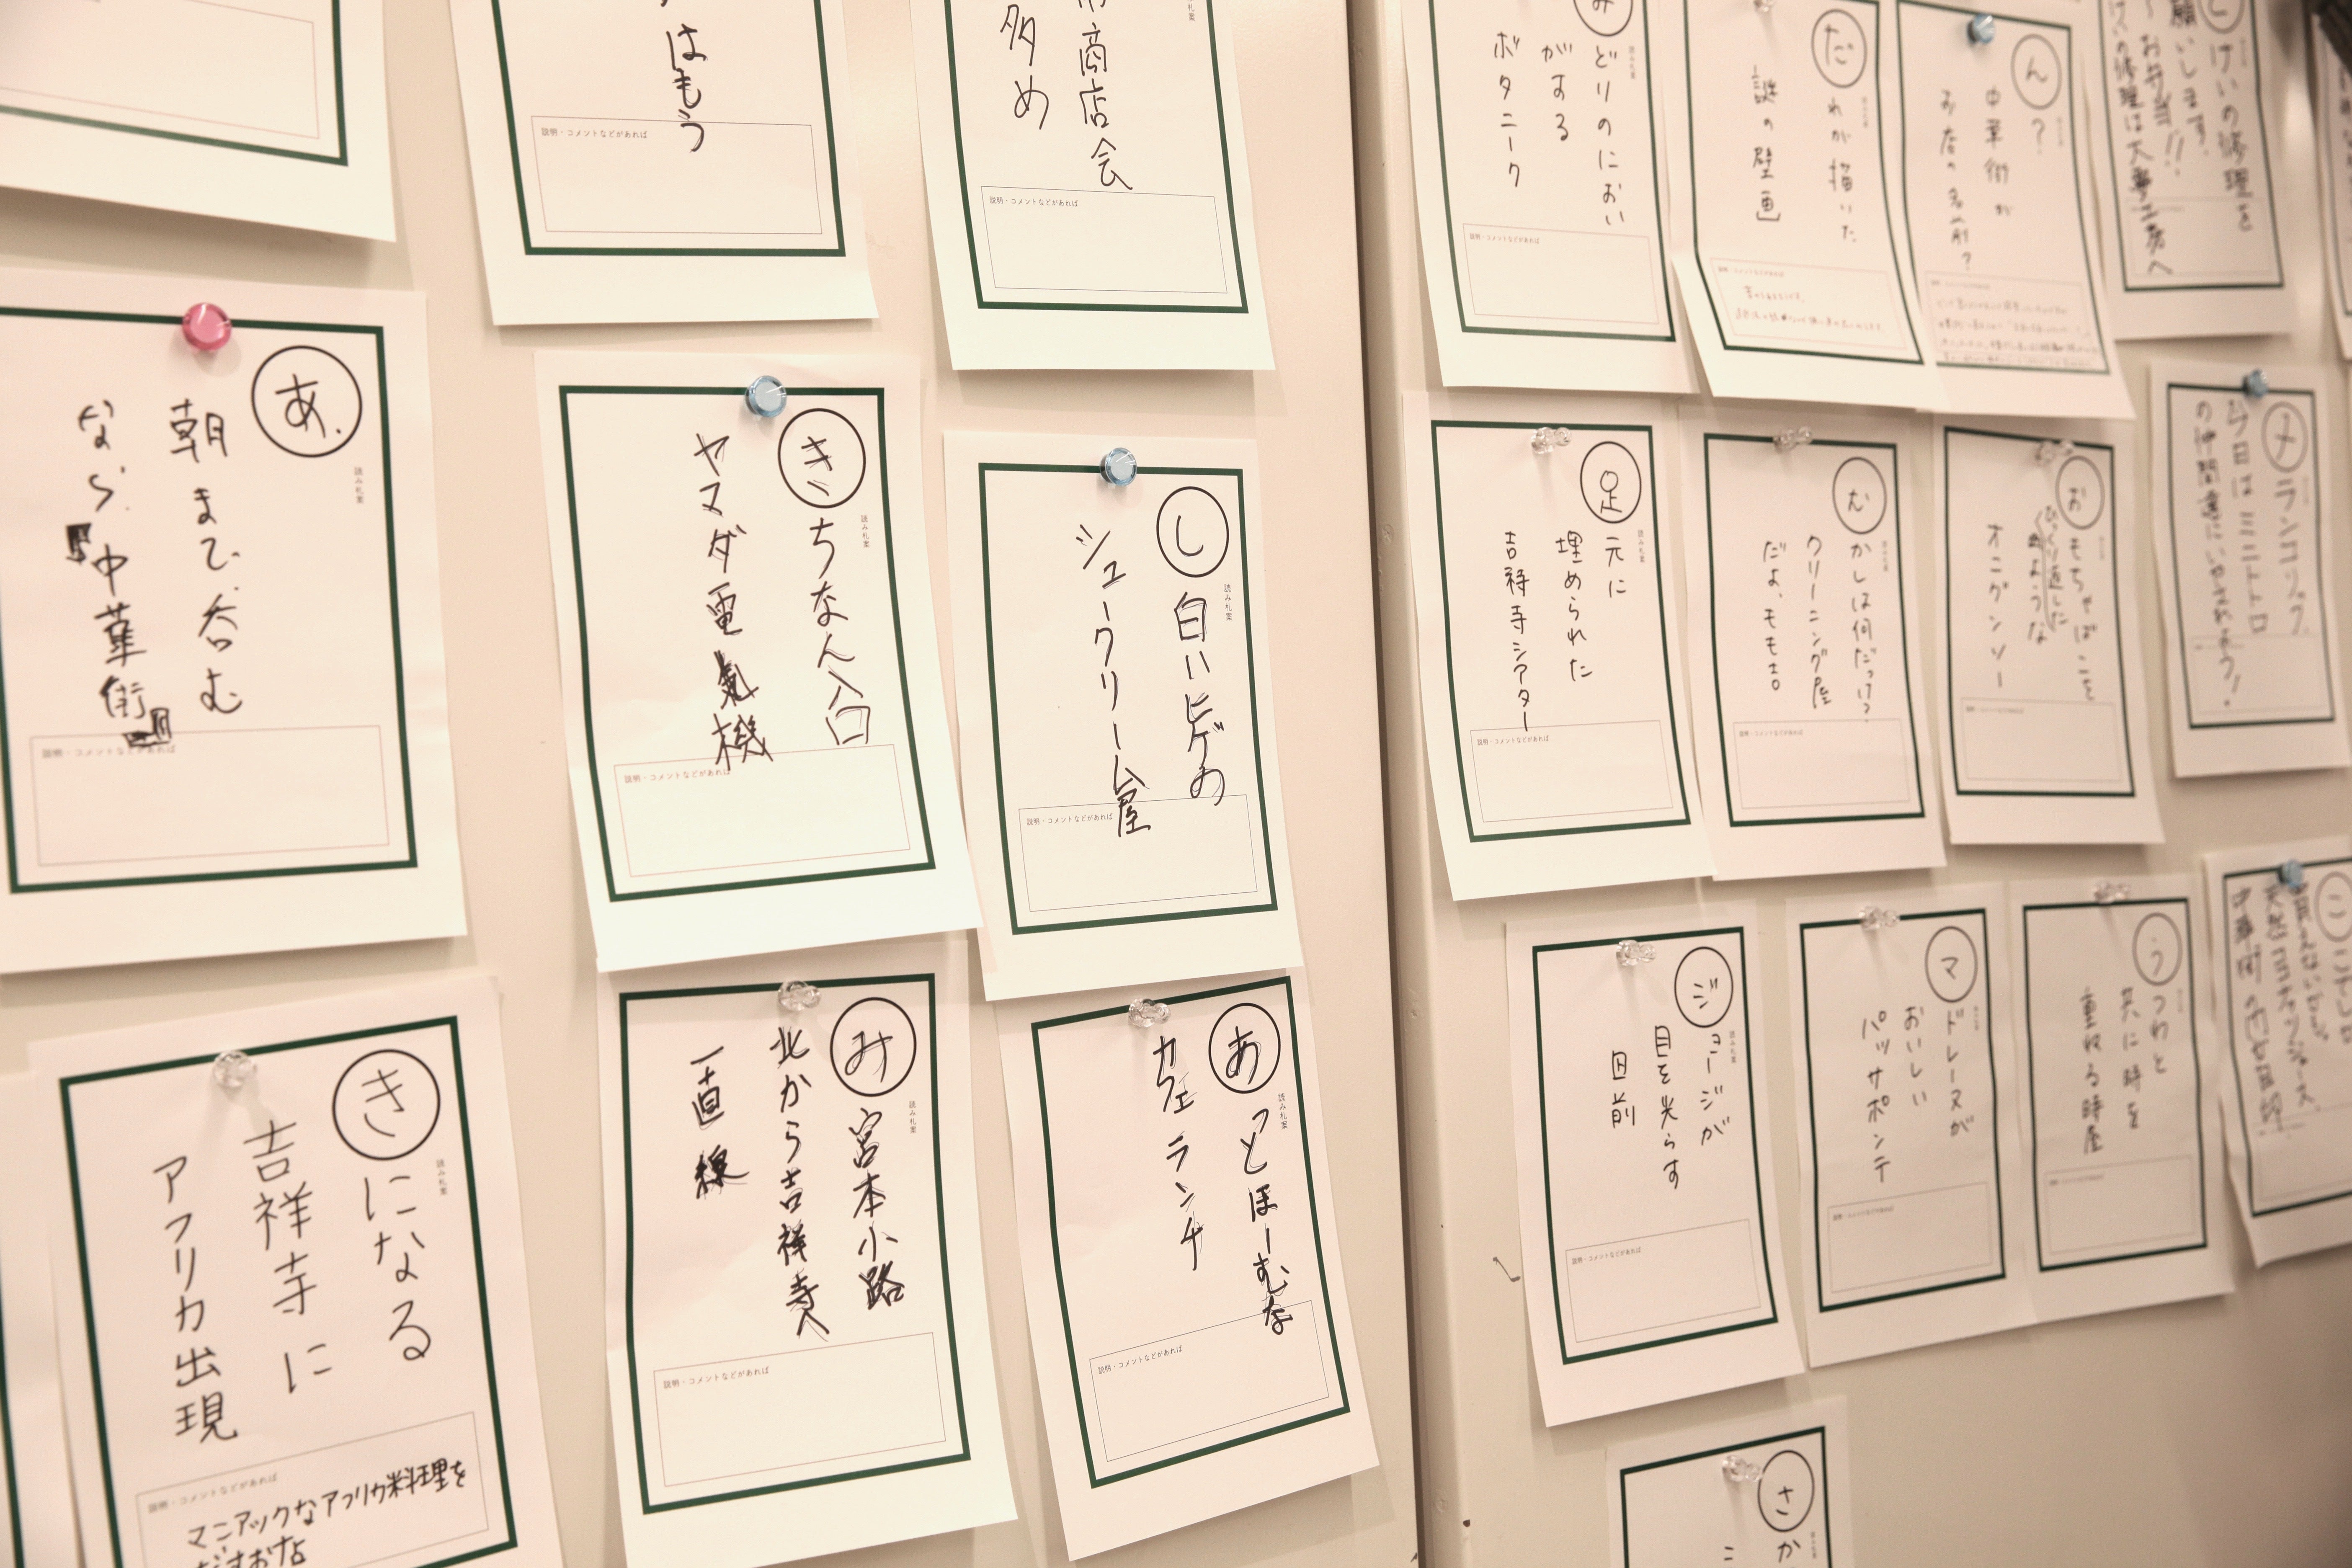 はもう
説明・コメントなどがあれば
商店会
多め
説明・コメントなどがあれば
みどりのにおい
がする
ボタニーク
説明・コメントなどがあれば
だれが描いた
謎の壁画
ん?
中華街が
お店の名前?
とけいの修理を
願いします。
お弁当!!
あ.
読み札案
朝まで呑む
なら.
中華街
説明・コメントなどがあれば
き
読み札案
ちなん入口
ヤマダ電氣機
説明・コメントなどがあれば
し
読み札案
白いヒゲの
シュークリーム屋
説明・コメントなどがあれば
足
読み札案
元に
埋められた
吉祥寺シアター
説明・コメントなどがあれば
む
かしは何だっけ?
クリーニング屋
だよ、ももき。
説明・コメントなどがあれば
お
もちゃばこを
ひっくり返した
ような
オニグンソー
メ
ランコリック
今日はミニトロ
き
読み札案
になる
吉祥寺に
アフリカ出現
説明・コメントなどがあれば
マニアックなアフリカ料理を
だすお店
み
読み札案
宮本小路
北から吉祥寺へ
一直線
説明・コメントなどがあれば
あ
読み札案
っとほーむな
カフェランチ
説明・コメントなどがあれば
ジ
読み札案
ョージが
目を光らす
回前
説明・コメントなどがあれば
マ
ドレーヌが
おいしい
パッサポンテ
説明・コメントなどがあれば
う
つわと
共に時を
重ねる時屋
さ
読み札案
か